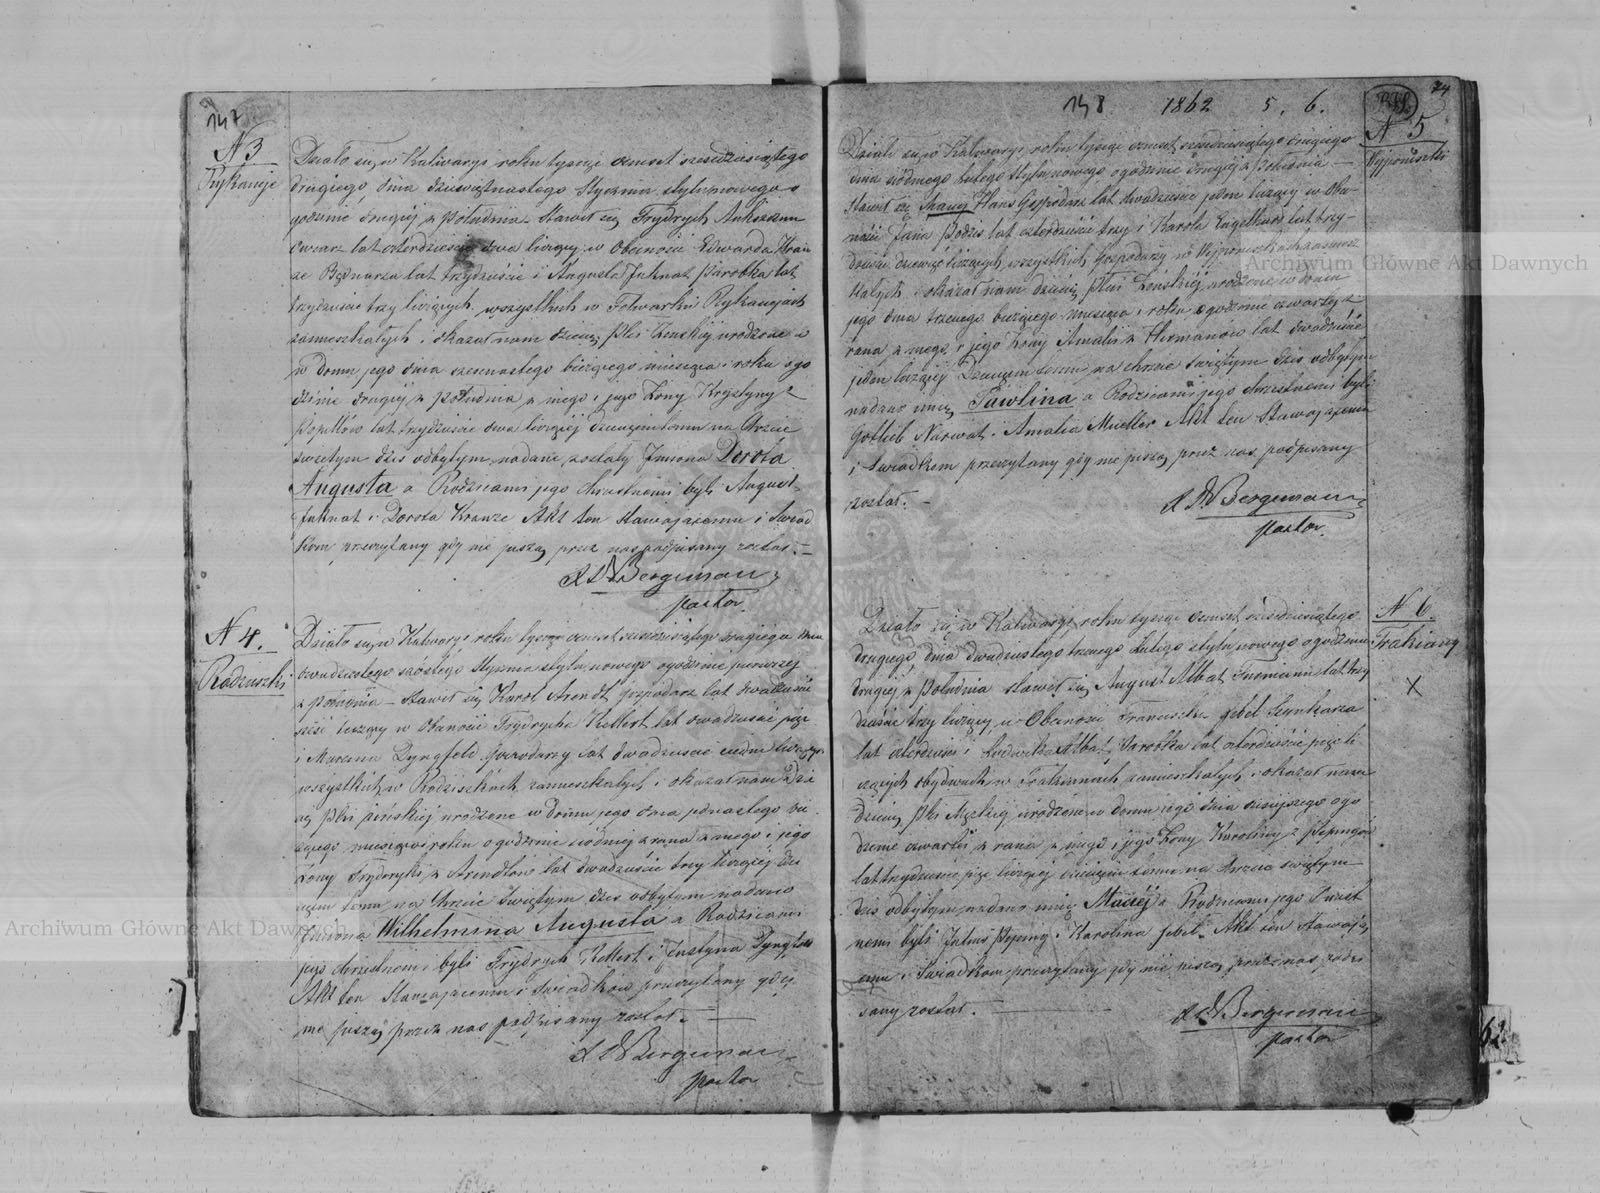 147
N 3
Rykaucje
Działo się w Kalwaryi roku tysiąc ośmset sześćdziesiątego
drugiego, dnia dziewiętnastego Stycznia stylu nowego o
godzinie drugiej z południa. Stawił się Frydrych
Owczarz lat czterdzieście dwa liczący, w Obecności Edwarda Kran
ze Bednarza lat trzydzieście i Augusta Juknat Parobka lat
trzydzieście trzy liczących, wszystkich w Folwarku Rykaucjach
zamieszkałych, i okazał nam dziecię płci Żeńskiej urodzone
w domu jego dnia szesnastego bieżącego miesiąca i roku o go
dzinie drugiej z południa, z niego i jego Żony Krystyny z
lat trzydzieście dwa liczącej Dziecięciu temu na Chrzcie
świętym dziś odbytym nadane zostały Imiona Dorota
Augusta a Rodzicami jego chrzestnemi byli August
Juknat i Dorota Kranze Akt ten stawającemu i Świad
kom przeczytany gdy nie piszą przez nas podpisany został. —
Bergman
pastor.
N 4.
Radziszki
Działo się w Kalwaryi roku tysiąc ośmset sześćdziesiątego drugiego dnia
dwudziestego szóstego Stycznia stylu nowego o godzinie pierwszej
z południa — Stawił się Karol Arendt gospodarz lat dwadzieście
sześć liczący w Obecności Frydrycha Kellert lat dwadzieście pięć
i Marcina Gospodarzy lat dwadzieście siedm liczących
wszystkich w Radziszkach zamieszkałych, i okazał nam dzie
cię płci żeńskiej urodzone w Domu jego dnia jedenastego bie
żącego miesiąca i roku o godzinie siódmej z rana z niego i jego
Żony Frydryki z Arendtów lat dwadzieście trzy liczącej Dzie
cięciu temu na Chrzcie Świętym dziś odbytym nadano
Imiona Wilhelmina Augusta a Rodzicami
jego chrzestnemi byli Frydrych Kellert i Justyna
Akt ten Stawającemu i Świadkom przeczytany gdy
nie piszą przez nas podpisany został. —
Bergman
pastor
148 1862 5, 6.
74
N 5
Działo się w Kalwaryi roku tysiąc ośmset sześćdziesiątego drugiego
dnia siódmego Lutego stylu nowego o godzinie drugiej z południa —
Stawił się Hans Gospodarz lat dwadzieście jeden liczący w Obe-
cności Jana lat czterdzieście trzy i Karola Engelhard lat trzy-
dzieście dziewięć liczących, wszystkich Gospodarzy w zamiesz
kałych, i okazał nam dziecię płci Żeńskiej urodzone w domu
jego dnia trzeciego bieżącego miesiąca i roku o godzinie czwartej z
rana z niego i jego Żony Amalii z Hermanów lat dwadzieście
jeden liczącej Dziecięciu temu na chrzcie świętym dziś odbytym
nadano imię Pawlina a Rodzicami jego chrzestnemi byli
Gotlieb Narwat i Amalia Mueller Akt ten Stawającemu
i Świadkom przeczytany gdy nie piszą przez nas podpisany
został. —
Bergman
pastor.
N 6.
Trakiany
X
Działo się w Kalwaryi roku tysiąc ośmset sześćdziesiątego
drugiego, dnia dwudziestego trzeciego Lutego stylu nowego o godzinie
drugiej z południa stawił się August Albat lat trzy
dzieście trzy liczący, w Obecności Franciszka Jebel Szynkarza
lat czterdzieście i Ludwika Albat Parobka lat czterdzieście pięć li
czących obydwóch w Trakianach zamieszkałych i okazał nam
dziecię płci Męskiej urodzone w domu jego dnia dzisiejszego o go
dzinie czwartej z rana z niego i jego Żony Karoliny z
lat trzydzieście pięć liczącej Dziecięciu temu na chrzcie świętym
dziś odbytym nadano imię Maciej a Rodzicami jego Chrzest
nemi byli Julius i Karolina Jebel. Akt ten Stawają
cemu i Świadkom przeczytany gdy nie piszą przez nas podpi
sany został. —
Bergman
pastor
Archiwum Główne Akt Dawnych
Archiwum Główne Akt Dawnych